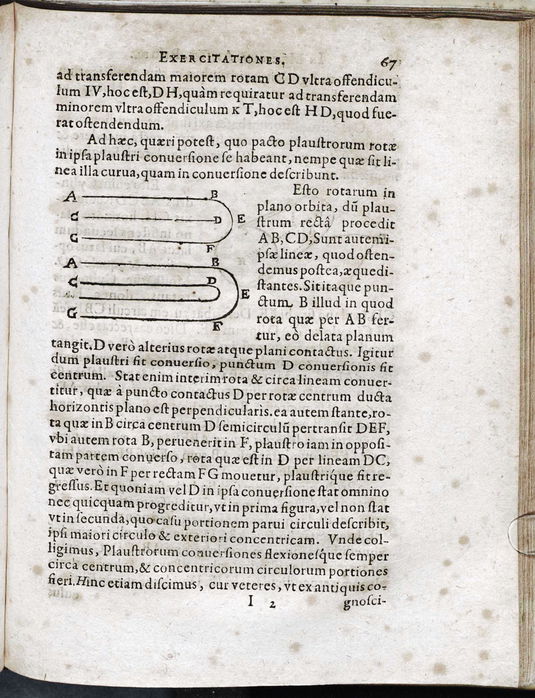 EXERCITATIONES. 67
ad transferendam maiorem rotam CD vltra offendicu-
lum IV, hoc eſt, DH, quàm requiratur ad transferendam
minorem vltra offendiculum K T, hoc eſt HD, quod fue-
rat oſtendendum.
Ad hæc, quæri poteſt, quo pacto plauſtrorum rotæ
in ipſa plauſtri conuerſione ſe habeant, nempe quæ ſit li-
nea illa curua, quam in conuerſione deſcribunt.
Eſto rotarum in
plano orbita, dũ plau-
ſtrum rectâ procedit
AB, CD, Sunt autem i-
pſæ lineæ, quod oſten-
demus poſtea, æquedi-
ſtantes. Sit itaque pun-
ctum B illud in quod
rota quæ per AB fer-
tur, eò delata planum
A B
C D E
G F
A B
C D
E
G F
tangit. D verò alterius rotæ atque plani contactus. Igitur
dum plauſtri fit conuerſio, punctum D conuerſionis fit
centrum. Stat enim interim rota & circa lineam conuer-
titur, quæ à puncto contactus D per rotæ centrum ducta
horizontis plano eſt perpendicularis. ea autem ſtante, ro-
ta quæ in B circa centrum D ſemicirculũ pertranſit DEF,
vbi autem rota B, peruenerit in F, plauſtro iam in oppoſi-
tam partem conuerſo, rota quæ eſt in D per lineam DC,
quæ verò in F per rectam FG mouetur, plauſtrique fit re-
greſſus. Et quoniam vel D in ipſa conuerſione ſtat omnino
nec quicquam progreditur, vt in prima figura, vel non ſtat
vt in ſecunda, quo caſu portionem parui circuli deſcribit,
ipſi maiori circulo & exteriori concentricam. Vnde col-
ligimus, Plauſtrorum conuerſiones flexioneſque ſemper
circa centrum, & concentricorum circulorum portiones
fieri. Hinc etiam diſcimus, cur veteres, vt ex antiquis co-
I 2 gnoſci-